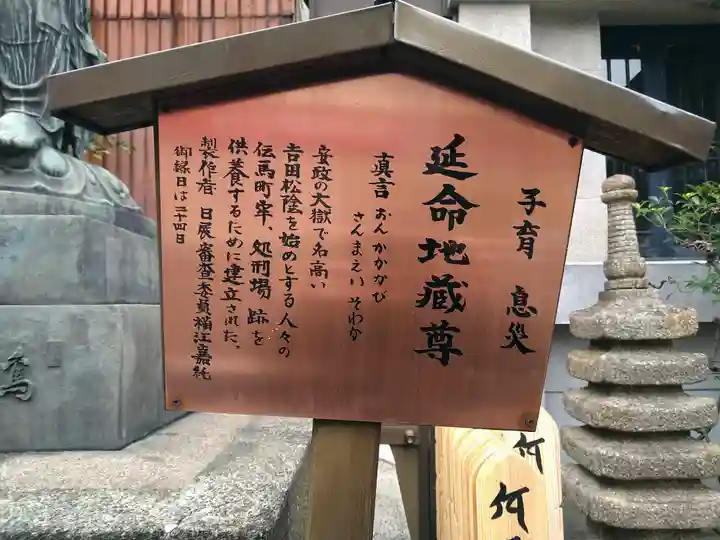 子育 息災
延命地蔵尊
真言 おん かかかび
さんまえい そわか
安政の大獄で名高い
吉田松陰を始めとする人々の
伝馬町牢、処刑場 跡を
供養するために建立された。
製作者 日展審査委員 稲江嘉純
御縁日は二十四日
何
何